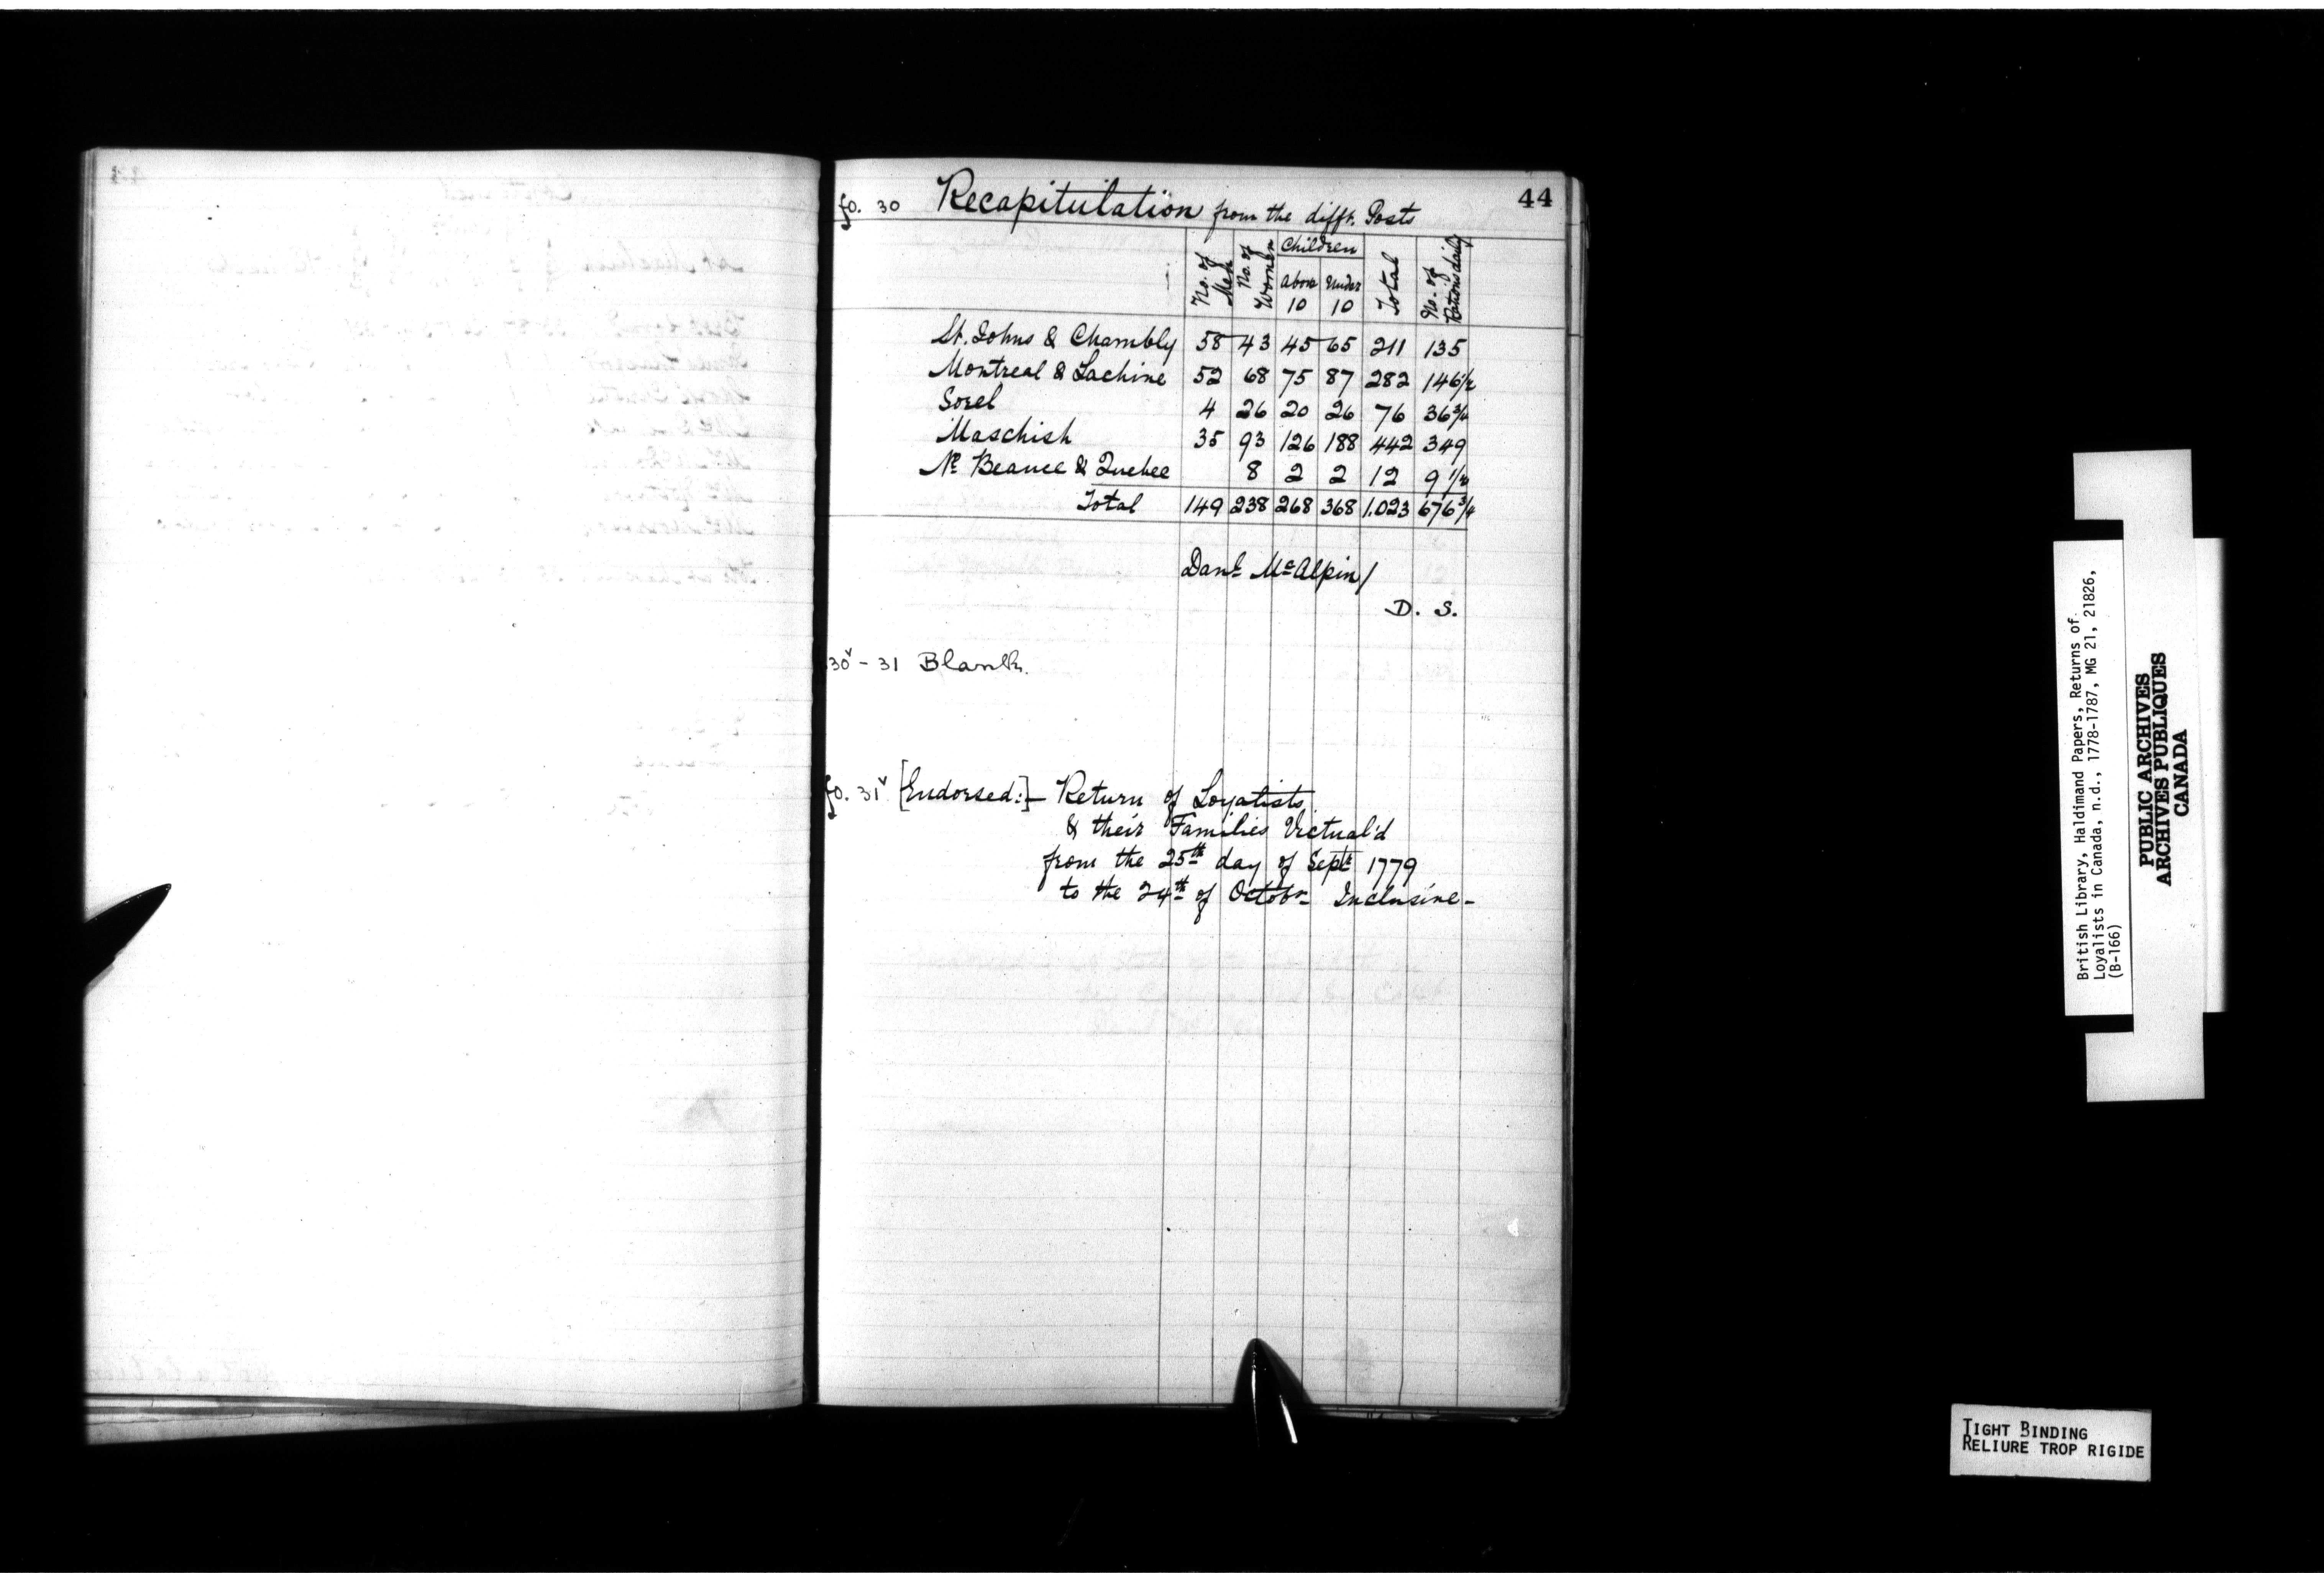 44
fo. 30 Recapitulation from the difft. Posts
No. of Men No. of Women Children Total No. of Rations daily
Above 10 Under 10
St. Johns & Chambly 58 43 45 65 211 135
Montreal & Lachine 52 68 75 87 282 146 1/2
Sorel 4 26 20 26 76 36 3/4
Maschish 35 93 126 188 442 349
Nr. Beauce & Quebec 8 2 2 12 9 1/2
Total 149 238 268 368 1.023 676 3/4
Danl. McAlpin/
D. S.
30v - 31 Blank.
fo. 31v [Endorsed:]- Return of Loyalists
& their Families Victual'd
from the 25th day of Septr 1779
to the 24th of Octobr Inclusive-
British Library, Haldimand Papers, Returns of
Loyalists in Canada, n.d., 1778-1787, MG 21, 21826,
(B-166)
PUBLIC ARCHIVES
ARCHIVES PUBLIQUES
CANADA
TIGHT BINDING
RELIURE TROP RIGIDE